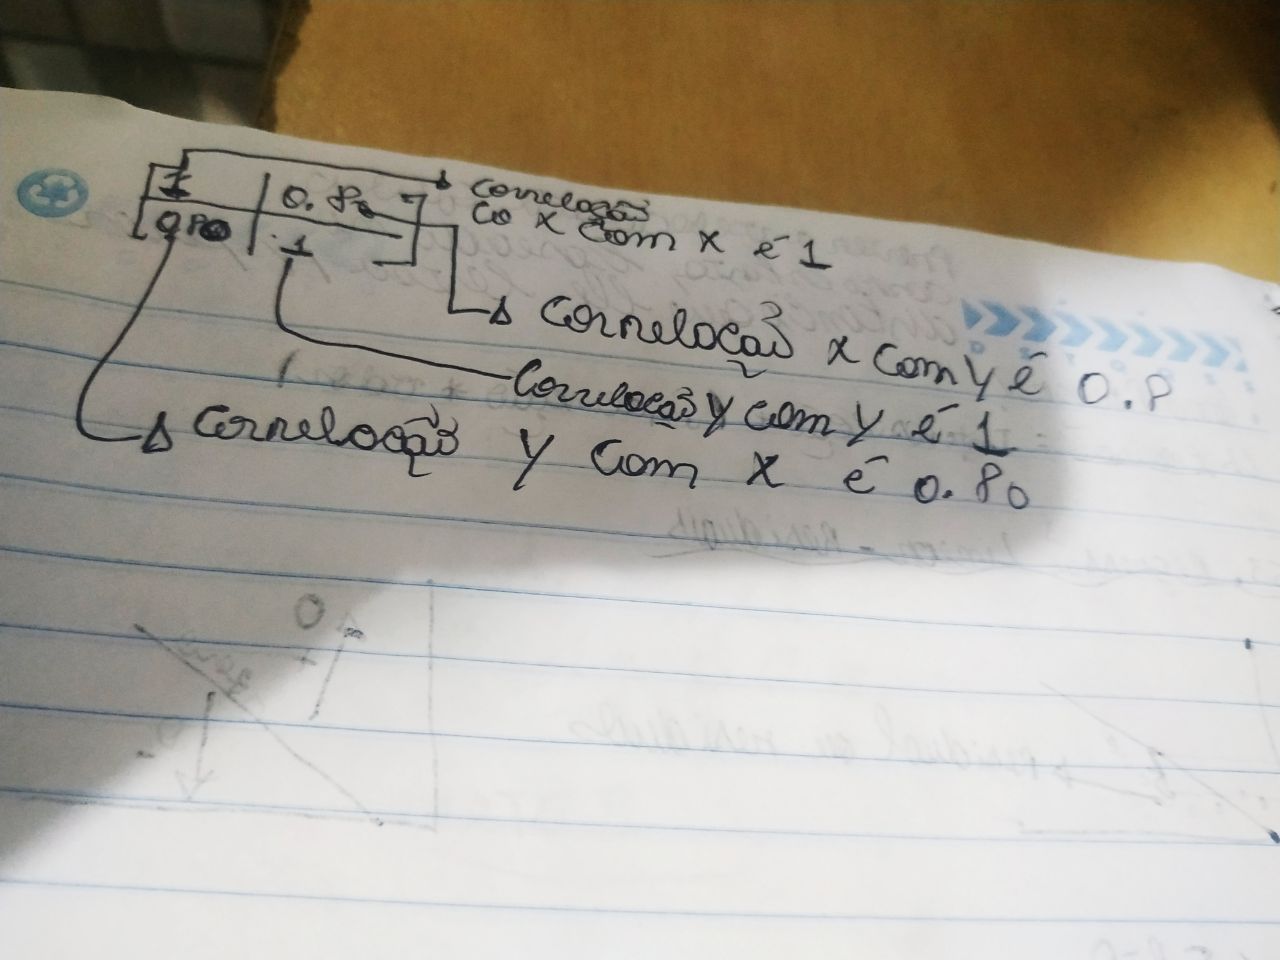 1 0.80
0.80 1
Correlação
Co x com x é 1
Correlação x com y é 0.8
Correlação y com y é 1
Correlação y com x é 0.80